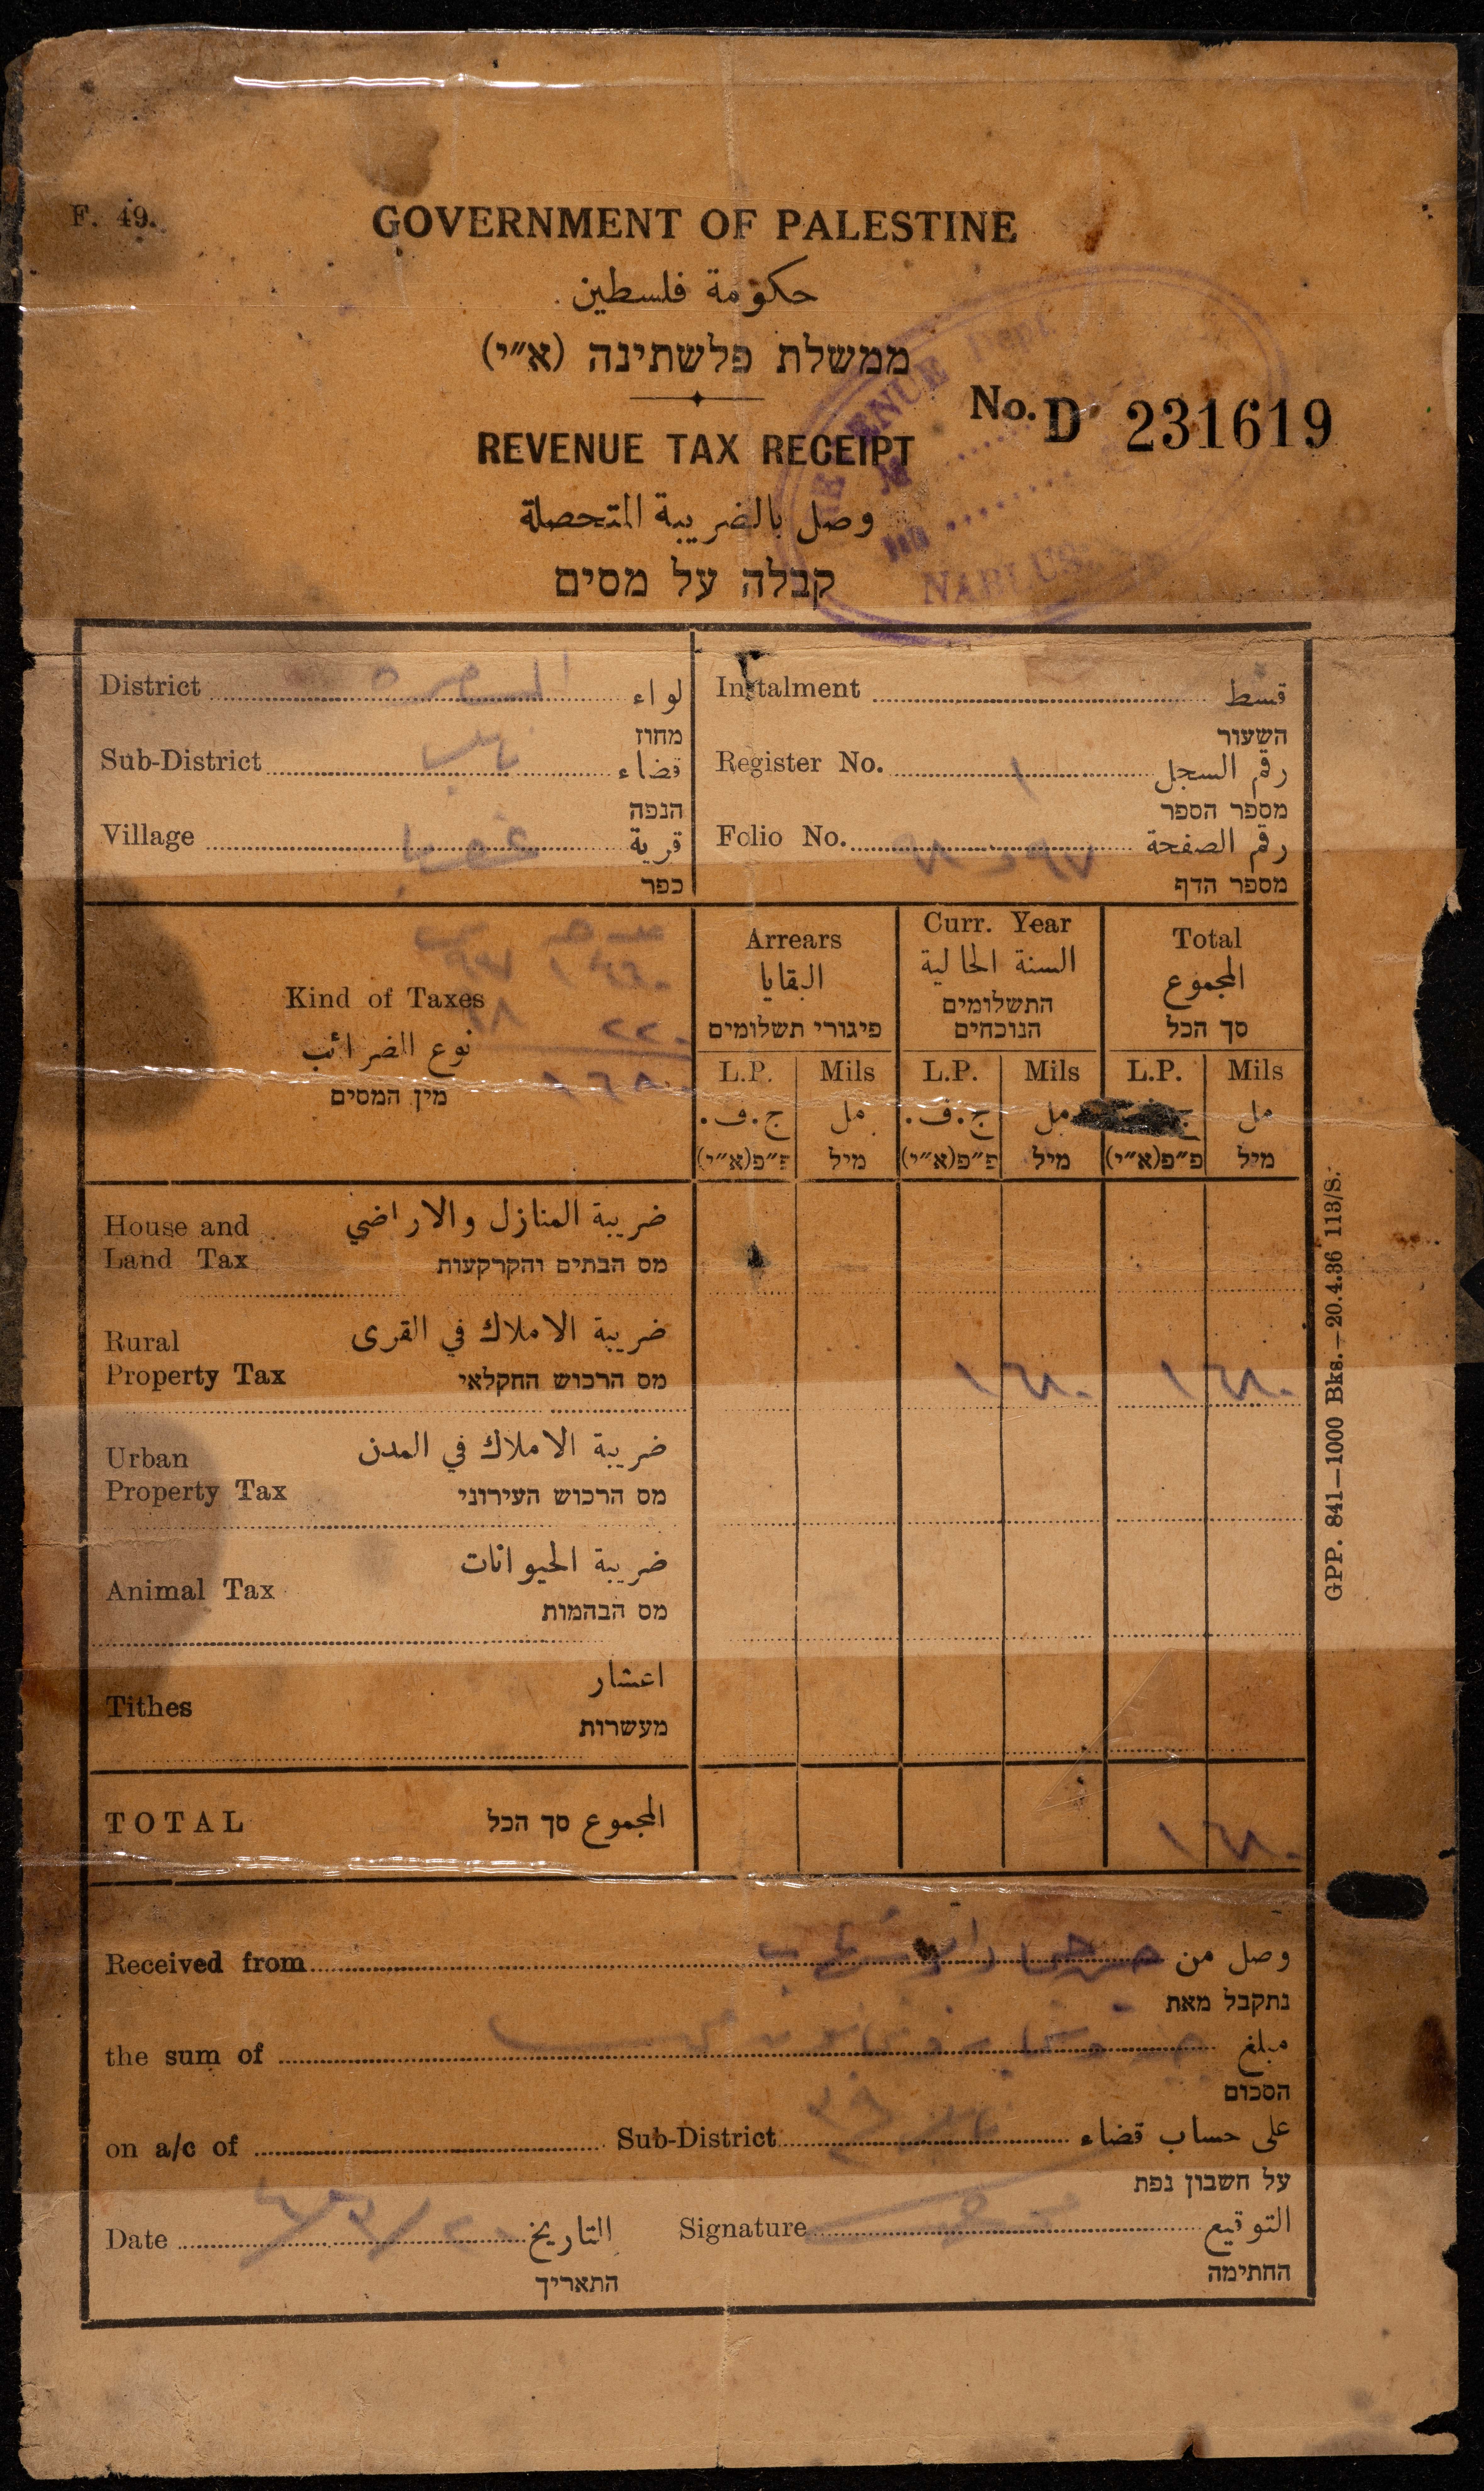 F. 49.
GOVERNMENT OF PALESTINE
حكومة فلسطين
ממשלת פלשתינה (א״י)
No. D 231619
REVENUE TAX RECEIPT
وصل بالضريبة المتحصلة
קבלה על מסים
REVENUE Dept.
NABLUS
District لواء
מחוז
Sub-District قضاء
הנפה
Village قرية
כפר
Instalment قسط
השעור
Register No. ١ رقم السجل
מספר הספר
Folio No. رقم الصفحة
מספר הדף
Kind of Taxes
نوع الضرائب
מין המסים
Arrears
البقايا
פיגורי תשלומים
Curr. Year
السنة الحالية
התשלומים
הנוכחים
Total
المجموع
סך הכל
L.P. Mils L.P. Mils L.P. Mils
ج.ف. مل ج.ف. مل ج مل
פ״פ(א״י) מיל פ״פ(א״י) מיל פ״פ(א״י) מיל
House and ضريبة المنازل والاراضي
Land Tax מס הבתים והקרקעות
Rural ضريبة الاملاك في القرى
Property Tax מס הרכוש החקלאי ١ ٦٨٠ ١ ٦٨٠
Urban ضريبة الاملاك في المدن
Property Tax מס הרכוש העירוני
Animal Tax ضريبة الحيوانات
מס הבהמות
Tithes اعشار
מעשרות
TOTAL المجموع סך הכל ١ ٦٨٠
Received from وصل من
נתקבל מאת
the sum of مبلغ
הסכום
on a/c of Sub-District على حساب قضاء
על חשבון נפת
Date التاريخ Signature التوقيع
התאריך החתימה
GPP. 841—1000 Bks.—20.4.36 113/S.